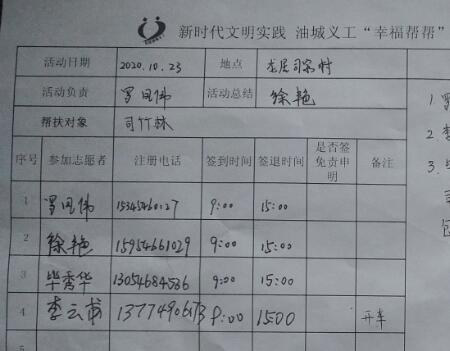 新时代文明实践 油城义工“幸福帮帮”
活动日期 2020.10.23 地点 龙居司家村
活动负责 罗同伟 活动总结 徐艳
帮扶对象 司竹林
序号 参加志愿者 注册电话 签到时间 签退时间 是否签免责申明 备注
1 罗同伟 15345460127 9:00 15:00
2 徐艳 15954661029 9:00 15:00
3 毕秀华 13054684586 9:00 15:00
4 李云甫 9:00 15:00 开车
1.
2.
3.